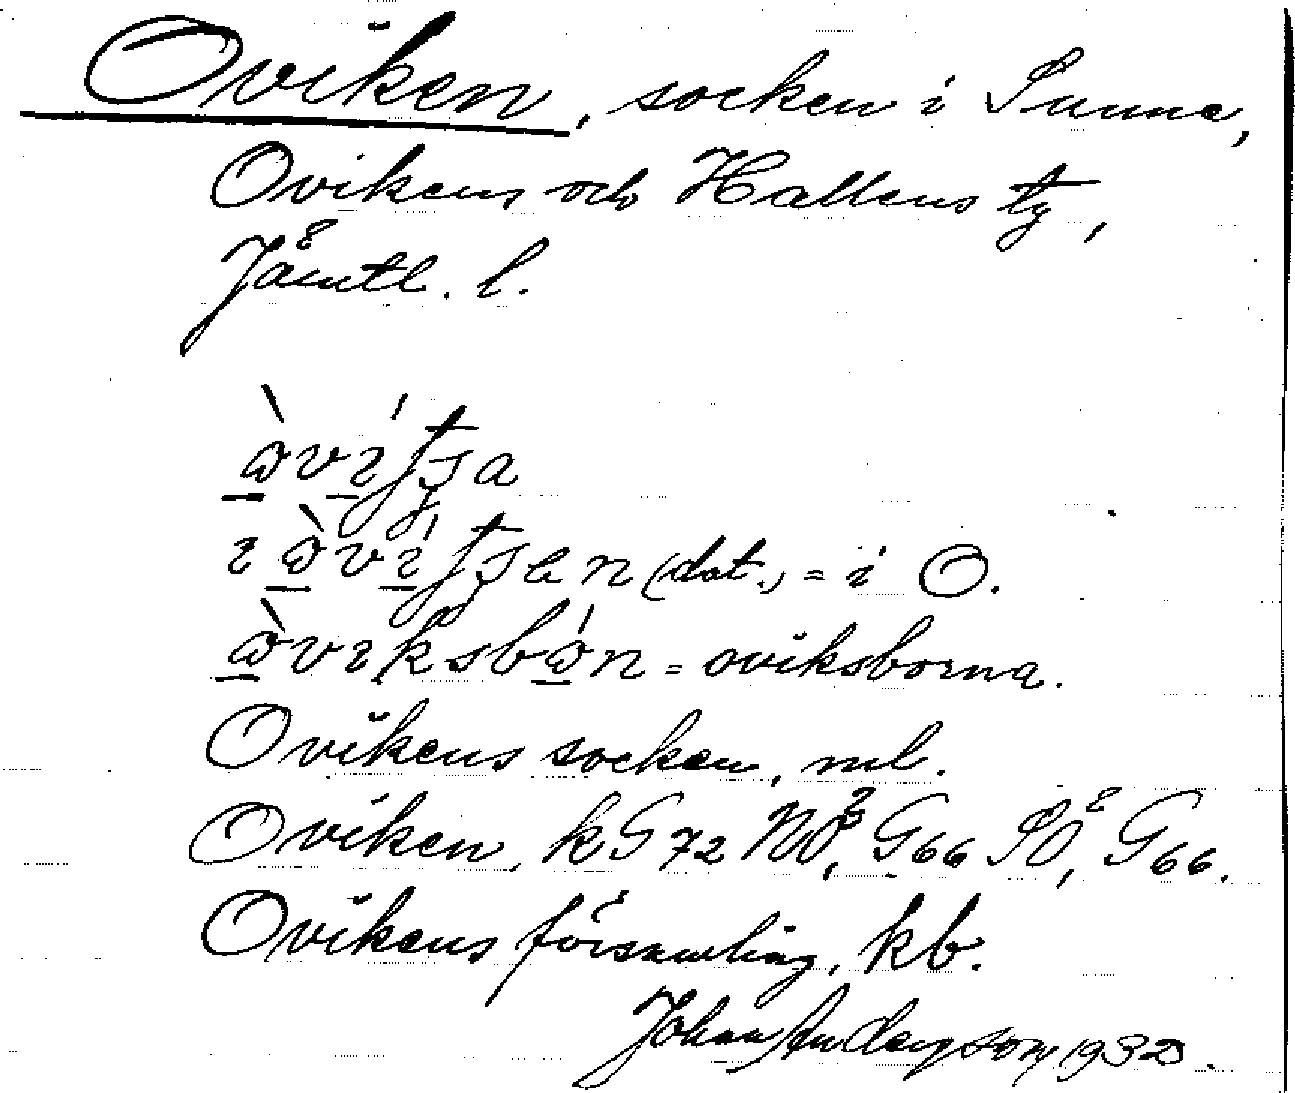 Oviken, socken i Sunne,
Ovikens och Hallens tg,
Jämtl. l.
òvíʃtʃa
ɩ òvíʃtʃen (dat.) = i O.
òvɩksbón = oviksborna.
Ovikens socken, ml.
Oviken, k G 72 NV, G 66 SV, G 66.
Ovikens församling, kb.
Johan Anderson 1932.